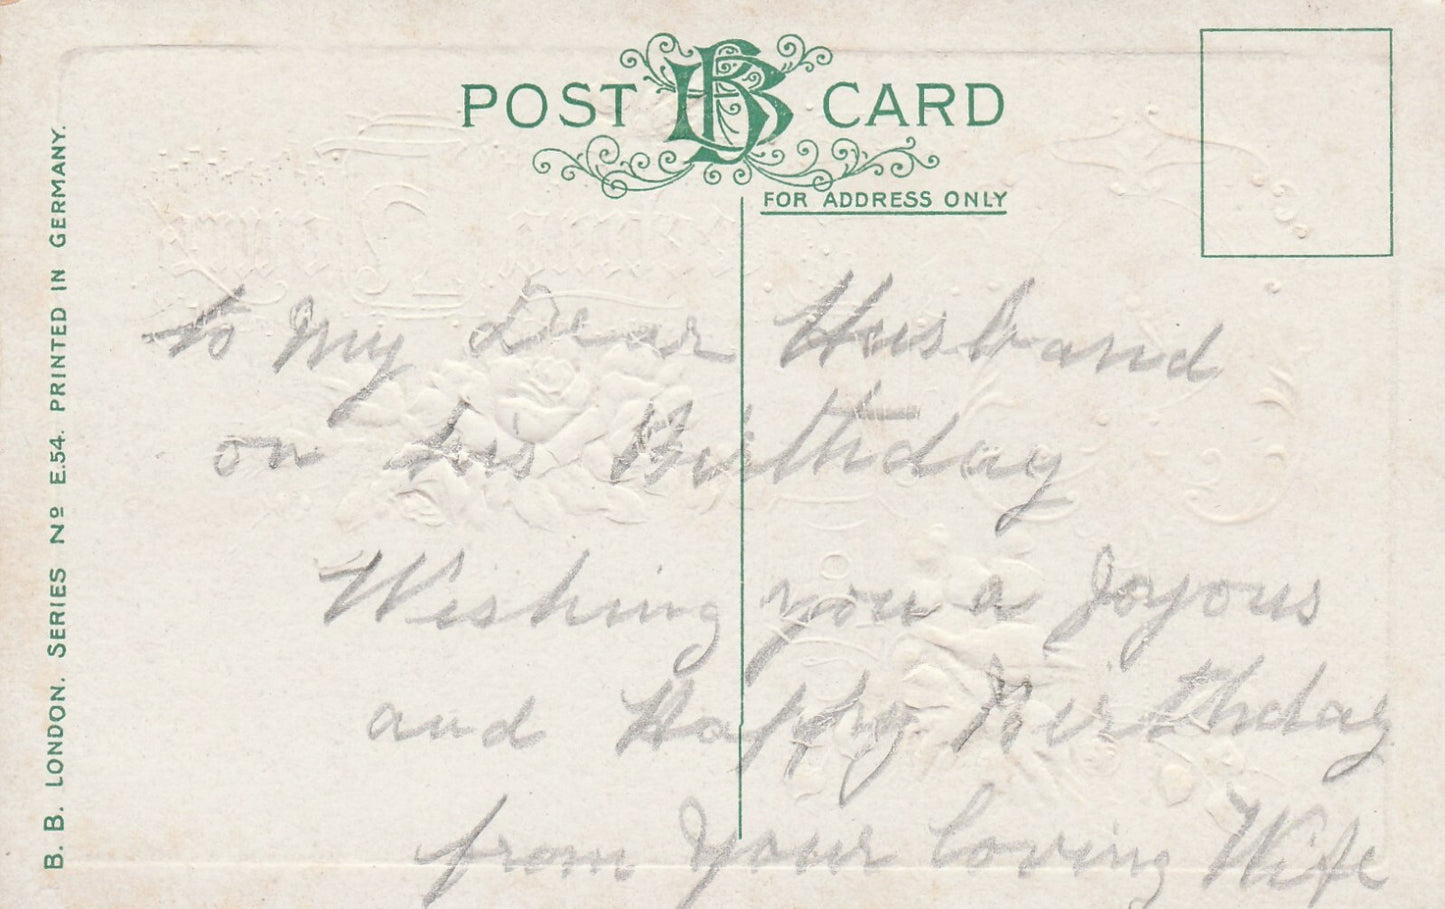 POST BB CARD
FOR ADDRESS ONLY
B. B. LONDON. SERIES Nº E.54. PRINTED IN GERMANY.
To My Dear Husband
on his Birthday
Wishing you a Joyous
and Happy Birthday
from Your loving Wife